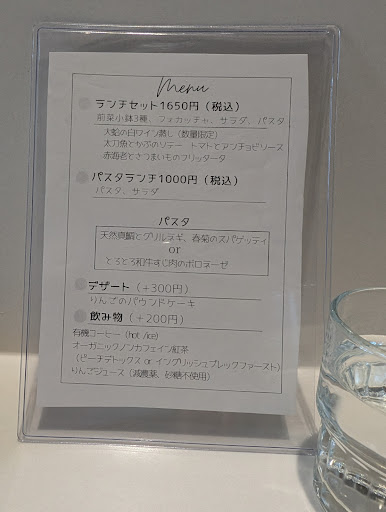 Menu
ランチセット1650円（税込）
前菜小鉢3種、フォカッチャ、サラダ、パスタ
大蛤の白ワイン蒸し（数量限定）
太刀魚とかぶのソテー　トマトとアンチョビソース
赤海老とさつまいものフリッター
パスタランチ1000円（税込）
パスタ、サラダ
パスタ
天然真鯛とグリルネギ、春菊のスパゲッティ
or
とろとろ和牛すじ肉のボロネーゼ
デザート（+300円）
りんごのパウンドケーキ
飲み物（+200円）
有機コーヒー（hot /ice）
オーガニックノンカフェイン紅茶
（ピーチデトックス or イングリッシュブレックファースト）
りんごジュース（減農薬、砂糖不使用）